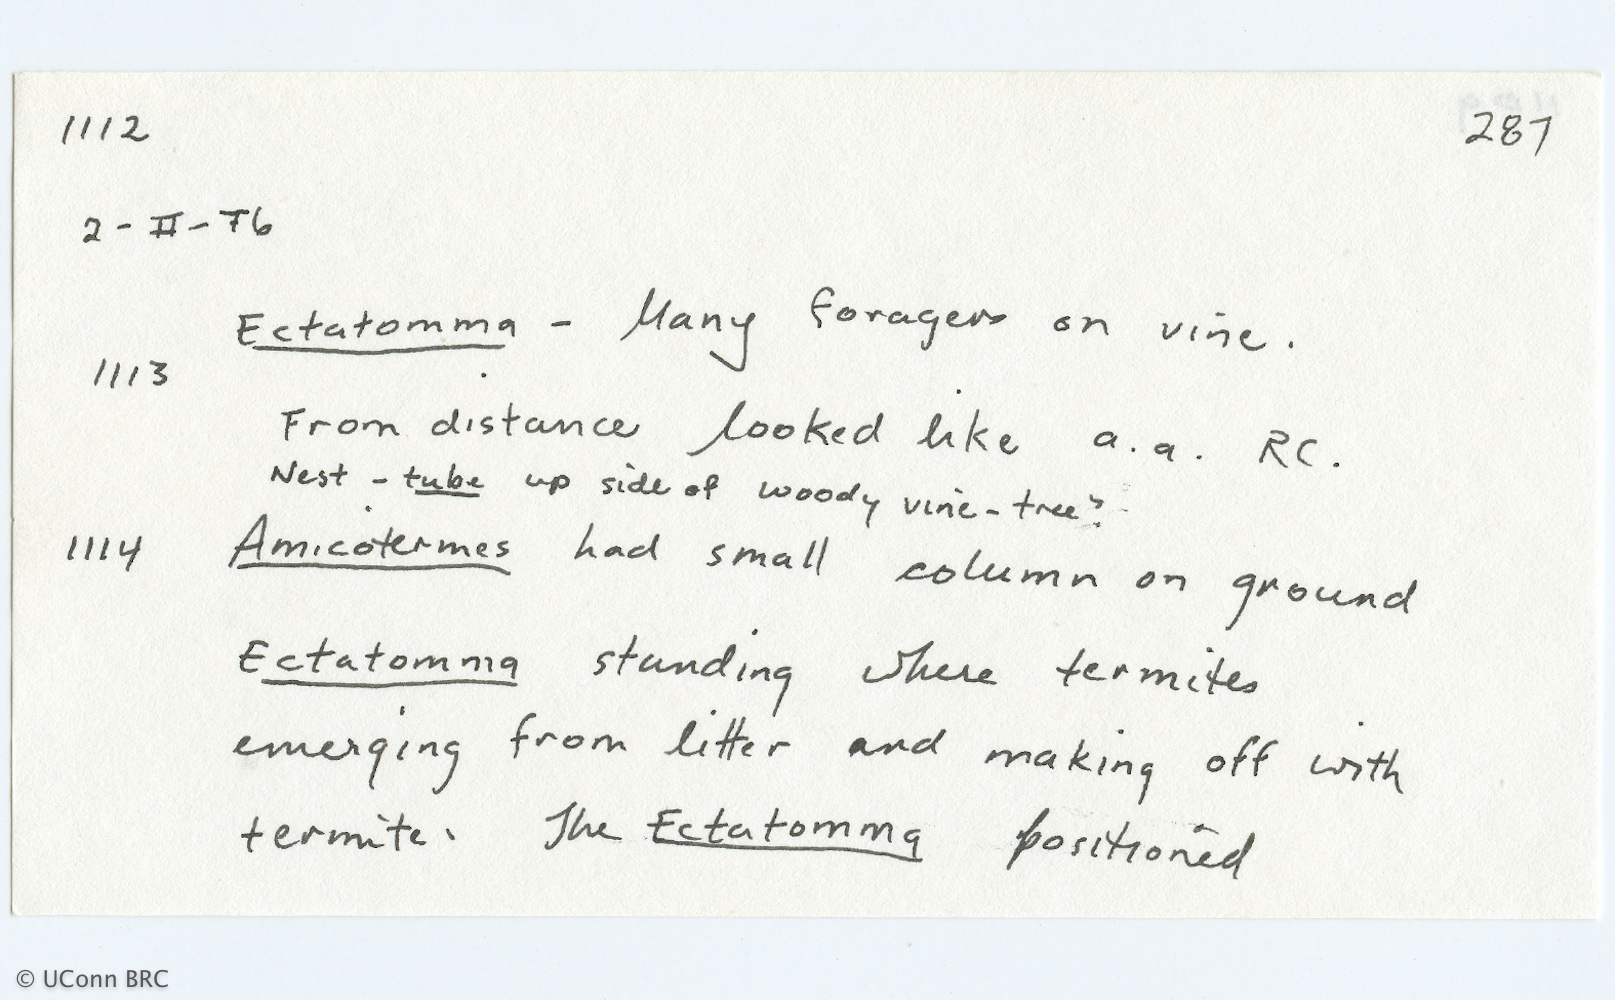 1112 287
2-II-76
Ectatomma - Many foragers on vine.
1113
From distance looked like a.a. RC.
Nest - tube up side of woody vine-tree?
1114 Amicotermes had small column on ground
Ectatomma standing where termites
emerging from litter and making off with
termite. The Ectatomma positioned
© UConn BRC